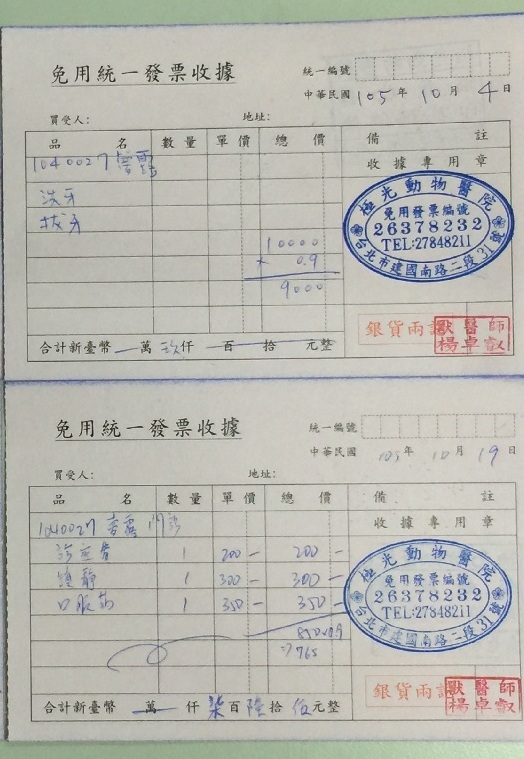 免用統一發票收據
統一編號
中華民國 105 年 10 月 4 日
買受人： 地址：
品 名 數量 單價 總 價 備 註
1040027
收據專用章
洗牙
拔牙
極光動物醫院
免用發票編號
26378232
TEL:27848211
台北市建國南路二段31號
10000
× 0.9
9000
銀貨兩
獸醫師
楊卓叡
合計新臺幣 萬 玖仟 百 拾 元整
免用統一發票收據
統一編號
中華民國 105 年 10 月 19 日
買受人： 地址：
品 名 數量 單價 總 價 備 註
1040027
收據專用章
1 200- 200-
鎮靜 1 300- 300-
口服藥 1 350- 350-
極光動物醫院
免用發票編號
26378232
TEL:27848211
台北市建國南路二段31號
⇒765
銀貨兩
獸醫師
楊卓叡
合計新臺幣 萬 仟 柒百陸拾伍元整